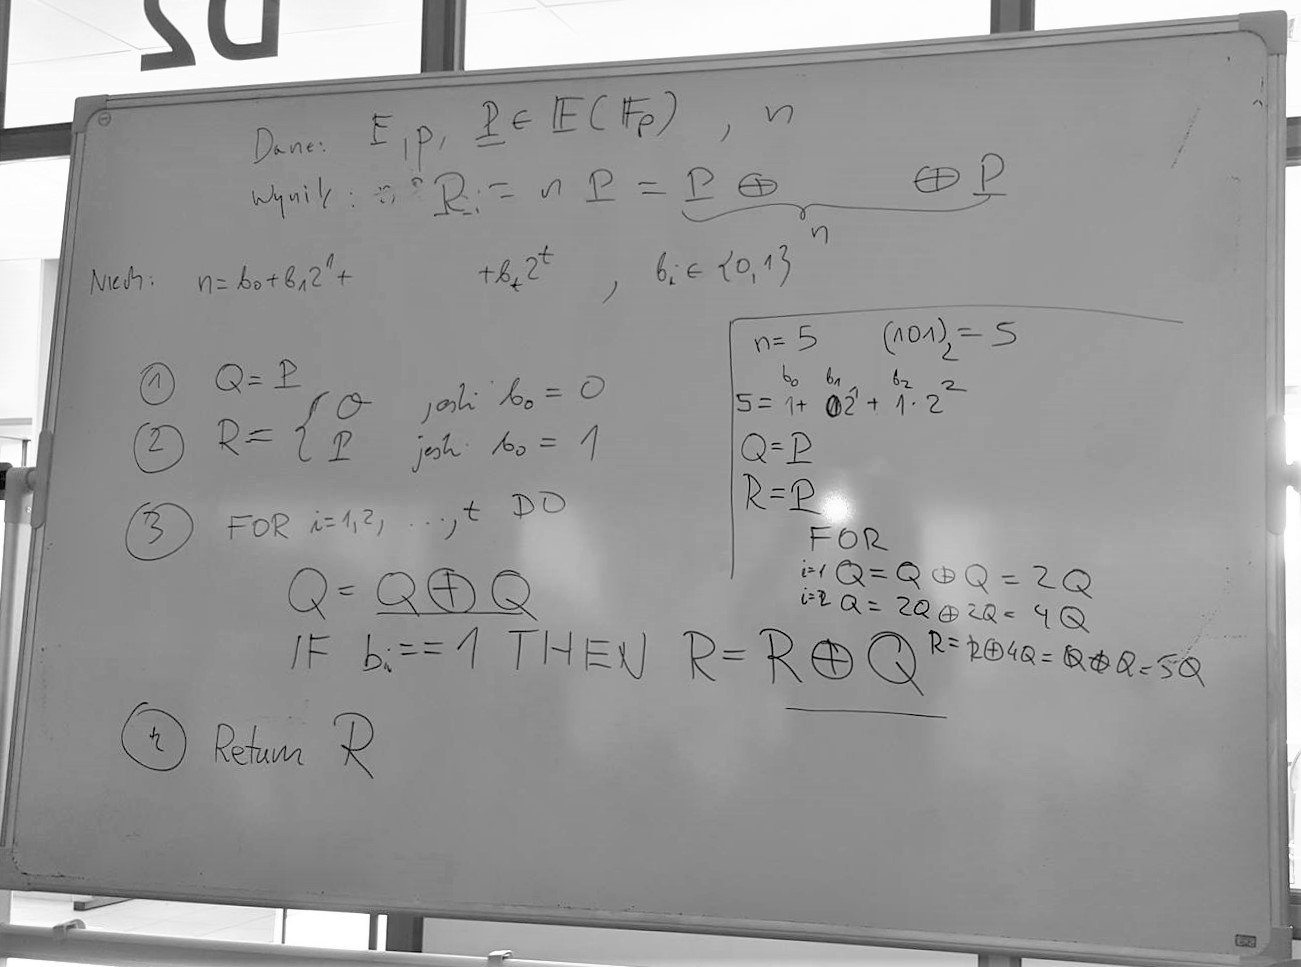 D2
Dane: E, p, P ∈ E(𝔽p) , n
Wynik: R := n P = P ⊕ ⊕ P
n
Niech: n = b₀ + b₁2¹ + + bₜ2ᵗ , bᵢ ∈ {0,1}
① Q = P
② R = { O jeśli b₀ = 0
P jeśli b₀ = 1
③ FOR i=1,2, ..., t DO
Q = Q ⊕ Q
IF bᵢ == 1 THEN R = R ⊕ Q
④ Return R
n = 5 (101)₂ = 5
b₀ b₁ b₂
5 = 1 + 0 2¹ + 1 · 2²
Q = P
R = P
FOR
i=1 Q = Q ⊕ Q = 2Q
i=2 Q = 2Q ⊕ 2Q = 4Q
R = R ⊕ 4Q = Q ⊕ Q = 5Q